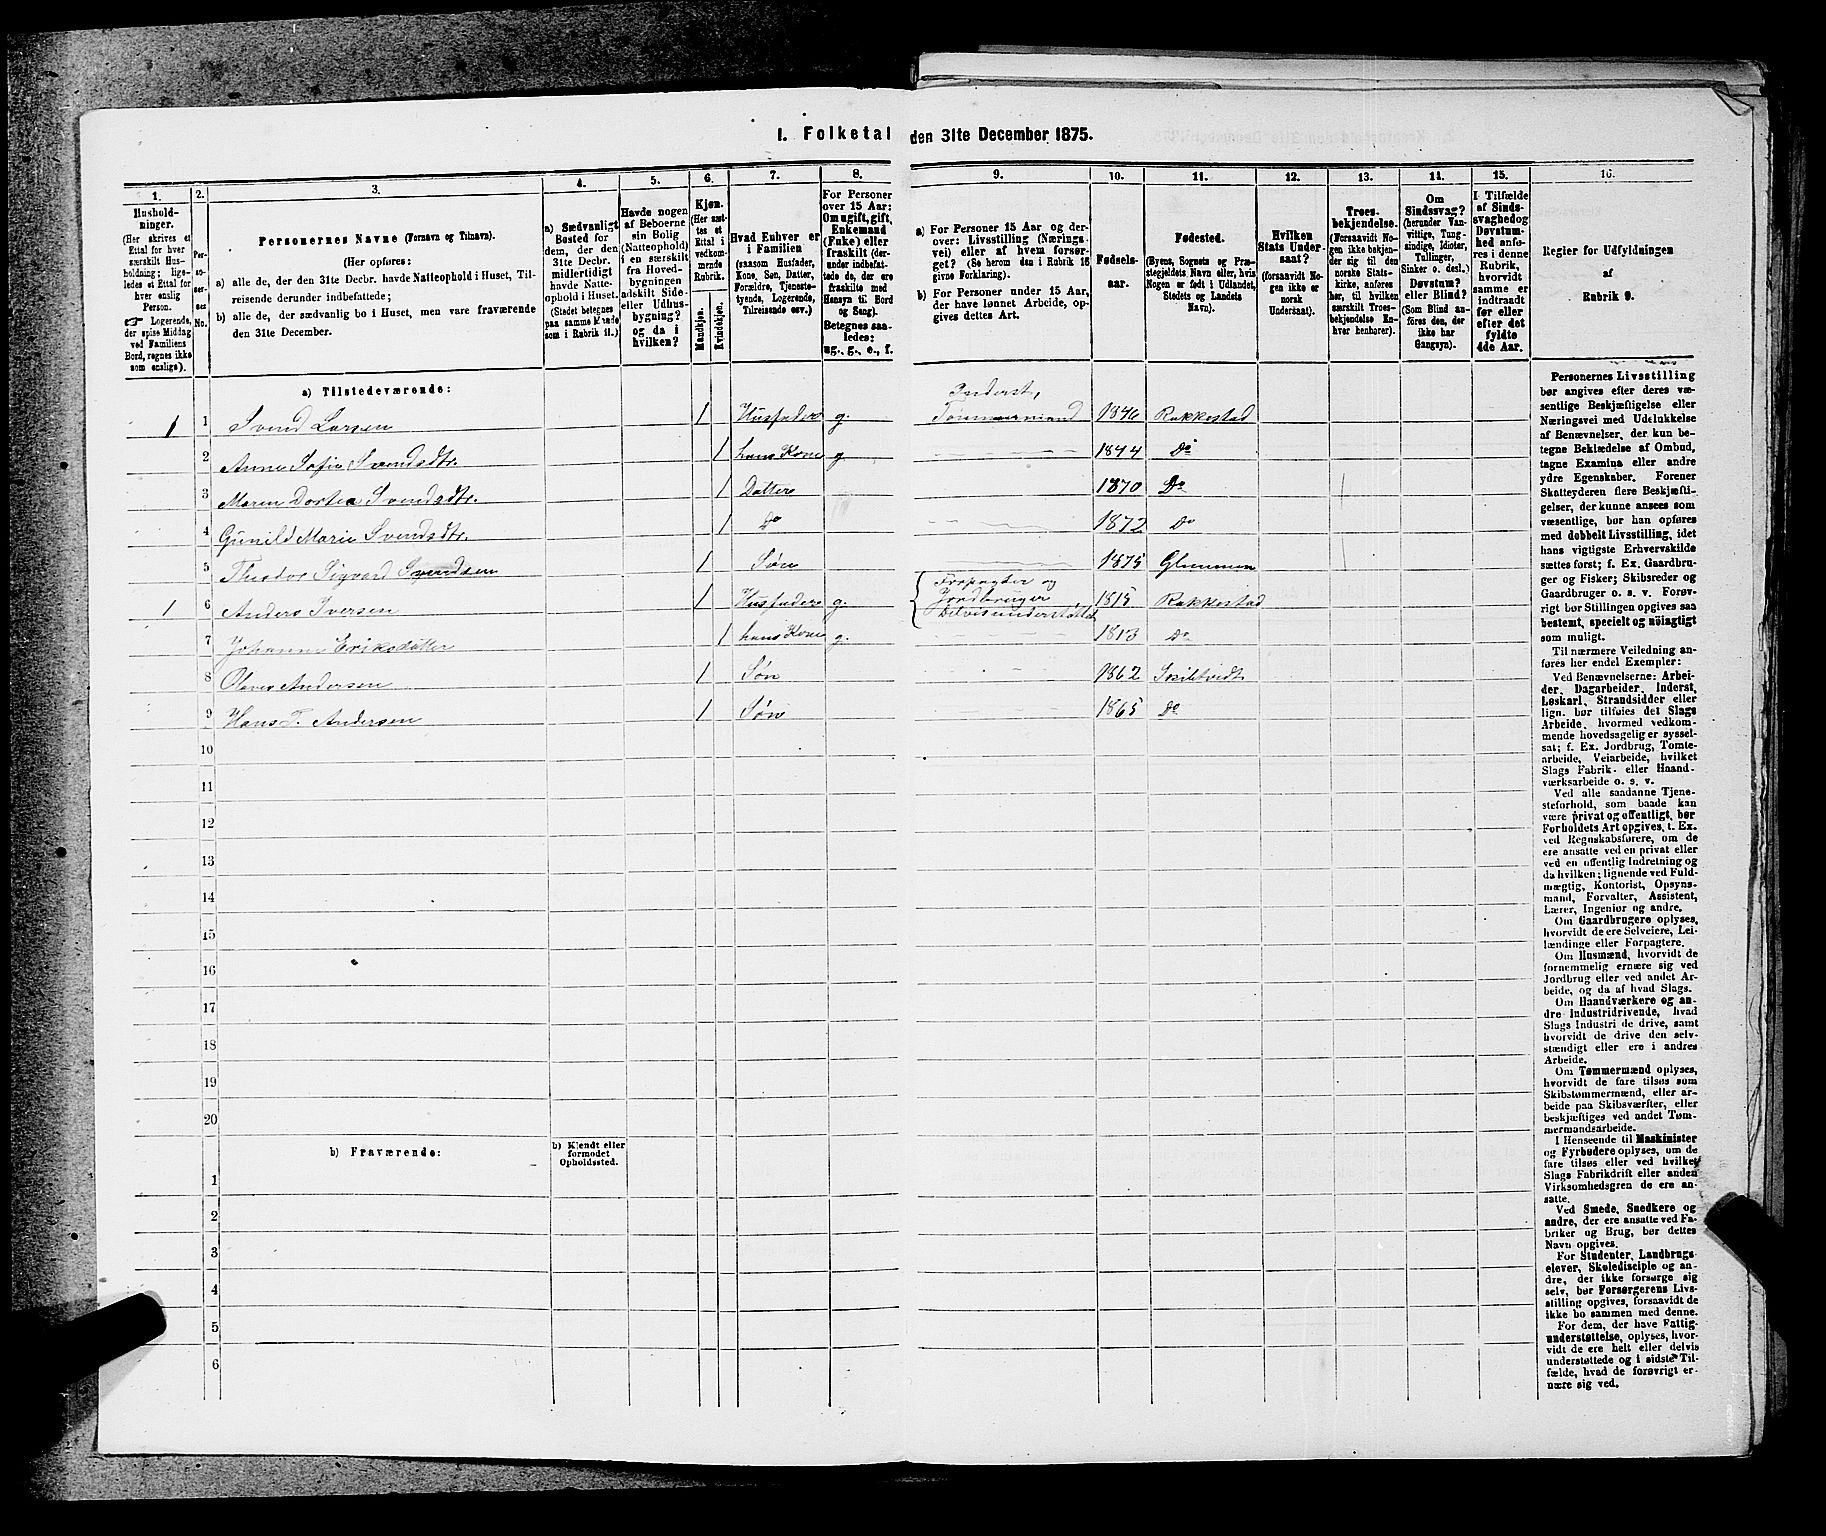 I. Folketal den 31te December 1875.
1. 2. 3. 4. 5. 6. 7. 8. 9. 10. 11. 12. 13. 14. 15. 16.
Hushold-
ninger.
(Her skrives et
Ettal for hver
særskilt Hus-
holdning; lige-
ledes et Ettal for
hver enslig
Person.
☞ Logerende,
der spise Middag
ved Familiens
Bord, regnes ikke
som enslige).
Per-
so-
ner-
nes
No.
Personernes Navne (Fornavn og Tilnavn).
(Her opføres:
a) alle de, der den 31te Decbr. havde Natteophold i Huset, Til-
reisende derunder indbefattede;
b) alle de, der sædvanlig bo i Huset, men vare fraværende
den 31te December.
a) Sædvanligt
Bosted for
dem, der den
31te Decbr.
midlertidigt
havde Natte-
ophold i Huset.
(Stedet betegnes
paa samme Maade
som i Rubrik 11.)
Havde nogen
af Beboerne
sin Bolig
(Natteophold)
i en særskilt
fra Hoved-
bygningen
adskilt Side-
eller Udhus-
bygning?
og da i
hvilken?
Kjøn.
(Her sæt-
tes et
Ettal i
vedkom-
mende
Rubrik.
Mandkjøn.
Kvindekjøn.
Hvad Enhver er
i Familien
(saasom Husfader,
Kone, Søn, Datter,
Forældre, Tjeneste-
tyende, Logerende,
Tilreisende osv.)
For Personer
over 15 Aar:
Om ugift, gift,
Enkemand
(Enke) eller
fraskilt (der-
under indbefat-
tede de, der ere
fraskilte med
Hensyn til Bord
og Seng).
Betegnes saa-
ledes:
ug., g., e., f.
a) For Personer 15 Aar og der-
over: Livsstilling (Nærings-
vei) eller af hvem forsør-
get? (Se herom den i Rubrik 16
givne Forklaring).
b) For Personer under 15 Aar,
der have lønnet Arbeide, op-
gives dettes Art.
Fødsels-
aar.
Fødested.
(Byens, Sognets og Præ-
stegjeldets Navn eller, hvis
Nogen er født i Udlandet,
Stedets og Landets
Navn).
Hvilken
Stats Under-
saat?
(forsaavidt No-
gen ikke er
norsk
Undersaat).
Troes-
bekjendelse.
(Forsaavidt No-
gen ikke bekjen-
der sig til den
norske Stats-
kirke, anføres
her, til hvilken
særskilt Troes-
bekjendelse En-
hver henhører).
Om
Sindssvag?
(herunder Van-
vittige, Tung-
sindige, Idioter,
Tullinger,
Sinker o. desl.)
Døvstum?
eller Blind?
(Som Blind an-
føres den, der
ikke har
Gangsyn).
I Tilfælde
af Sinds-
svaghed og
Døvstum-
hed anfø-
res i denne
Rubrik,
hvorvidt
samme er
indtraadt
før eller
efter det
fyldte
4de Aar.
Regler for Udfyldningen
af
Rubrik 9.
a) Tilstedeværende:
1 1 Svend Larsen 1 Husfader g. Inderst, Tømmermand 1846 Rakkestad
2 Anne Sofie Svendsdtr. 1 hans Kone g 1844 Do
3 Maren Dortea Svendsdtr. 1 Datter 1870 Do
4 Gunild Marie Svendsdtr. 1 Do 1872 Do
5 Theodor Sigvard Svendsen 1 Søn 1875 Glemmen
1 6 Anders Iversen 1 Husfader g. Forpagter og Jordbruger Delvis understøttet 1815 Rakkestad
7 Johanne Eriksdatter 1 hans Kone g. 1813 Do
8 Olaves Andersen 1 Søn 1862 Skibtvedt
9 Hans T. Andersen 1 Søn 1865 Do
10
11
12
13
14
15
16
17
18
19
20
b) Fraværende:
b) Kjendt eller
formodet
Opholdssted.
1
2
3
4
5
6
Personernes Livsstilling
bør angives efter deres væ-
sentlige Beskjæftigelse eller
Næringsvei med Udelukkelse
af Benævnelser, der kun be-
tegne Beklædelse af Ombud,
tagne Examina eller andre
ydre Egenskaber. Forener
Skatteyderen flere Beskjæfti-
gelser, der kunne ansees som
væsentlige, bør han opføres
med dobbelt Livsstilling, idet
hans vigtigste Erhvervskilde
sættes først; f. Ex. Gaardbru-
ger og Fisker; Skibsreder og
Gaardbruger o. s. v. Forøv-
rigt bør Stillingen opgives saa
bestemt, specielt og nöiagtigt
som muligt.
Til nærmere Veiledning an-
føres her endel Exempler:
Ved Benævnelserne: Arbei-
der, Dagarbeider, Inderst,
Løskarl, Strandsidder eller
lign. bør tilføies det Slags
Arbeide, hvormed vedkom-
mende hovedsagelig er syssel-
sat; f. Ex. Jordbrug, Tomte-
arbeide, Veiarbeide, hvilket
Slags Fabrik- eller Haand-
værksarbeide o. s. v.
Ved alle saadanne Tjene-
steforhold, som baade kan
være privat og offentligt, bør
Forholdets Art opgives, t. Ex.
ved Regnskabsførere, om de
ere ansatte ved en privat eller
ved en offentlig Indretning og
da hvilken; lignende ved Fuld-
mægtig, Kontorist, Opsyns-
mand, Forvalter, Assistent,
Lærer, Ingeniør og andre.
Om Gaardbrugere oplyses,
hvorvidt de ere Selveiere, Lei-
lændinge eller Forpagtere.
Om Husmænd, hvorvidt de
fornemmelig ernære sig ved
Jordbrug eller ved andet Ar-
beide, og da af hvad Slags.
Om Haandværkere og an-
dre Industridrivende, hvad
Slags Industri de drive, samt
hvorvidt de drive den selv-
stændigt eller ere i andres
Arbeide.
Om Tømmermænd oplyses,
hvorvidt de fare tilsøs som
Skibstømmermænd, eller ar-
beide paa Skibsværfter, eller
beskjæftiges ved andet Tøm-
mermandsarbeide.
I Henseende til Maskinister
og Fyrbødere oplyses, om de
fare tilsøs eller ved hvilket
Slags Fabrikdrift eller anden
Virksomhedsgren de ere an-
satte.
Ved Smede, Snedkere og
andre, der ere ansatte ved Fa-
briker og Brug, bør dettes
Navn opgives.
For Studenter, Landbrugs-
elever, Skoledisciple og an-
dre, der ikke forsørge sig
selv, bør Forsørgerens Livs-
stilling opgives, forsaavidt de
ikke bo sammen med denne.
For dem, der have Fattig-
understøttelse, oplyses, hvor-
vidt de ere helt eller delvis
understøttede og i sidste Til-
fælde, hvad de forøvrigt er-
nære sig ved.